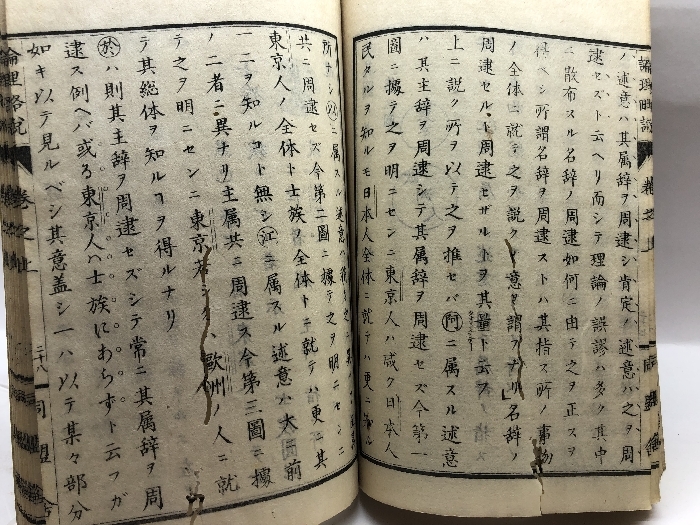 論理略説 巻之上
ノ述意ハ其属辞ヲ周逮シ肯定ノ述意ハ之ヲ周
逮セズト云ヘリ而シテ理論ノ誤謬ハ多ク其中
ニ散布スル名辞ノ周逮如何ニ由テ之ヲ正スヲ
得ベシ所謂名辞ヲ周逮ストハ其指ス所ノ事物
ノ全体ニ就テ之ヲ説クノ意ヲ謂フナリ」名辞ノ
周逮セルト周逮セザルトヲ其量ト云フ
上ニ説ク所ヲ以テ之ヲ推セバ阿ニ属スル述意
ハ其主辞ヲ周逮シテ其属辞ヲ周逮セズ今第一
圖ニ據テ之ヲ明ニセンニ東京人ハ咸ク日本人
民タルヲ知ルモ日本人全体ニ就テハ更ニ知ル
所ナシ ニ属スル述意ハ
共ニ周逮セズ今第二圖ニ據テ之ヲ明ニセンニ
東京人ノ全体ト士族ノ全体トニ就テハ更ニ其
一二ヲ知ルコト無シ江ニ属スル述意ハ大ニ前
ノ二者ニ異ナリ主属共ニ周逮ス今第三圖ニ據
テ之ヲ明ニセンニ東京 歐洲ノ人ニ就
テ其総体ヲ知ルコヲ得ルナリ
於ハ則其主辞ヲ周逮セズシテ常ニ其属辞ヲ周
逮ス例ヘバ或る東京人ハ士族にあらずト云フガ
如キ以テ見ルベシ其意盖シ一ハ以テ某々部分
論理略説 巻之上 二十八 同盟